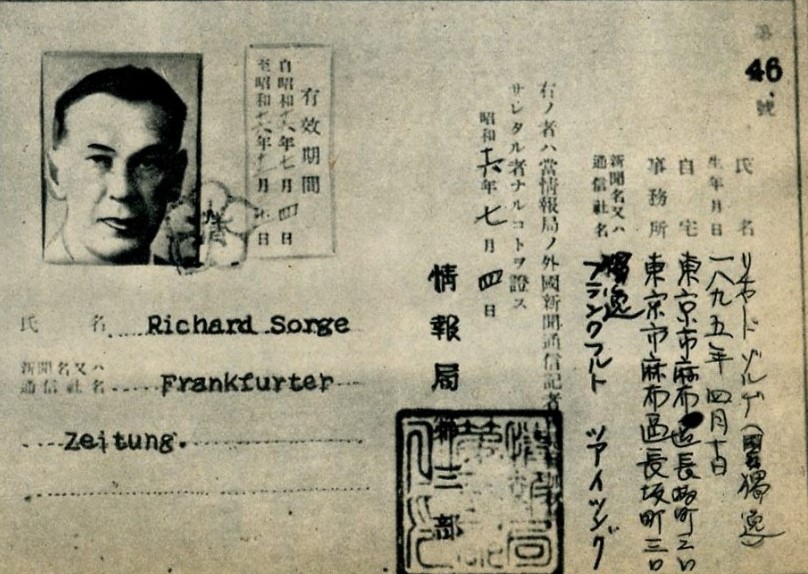 第46號
氏名 リチャード ゾルゲ (國籍 獨逸)
生年月日 一八九五年 四月十日
自宅 東京市麻布區長坂町三〇
事務所 東京市麻布區長坂町三〇
新聞名又ハ
通信社名
獨逸
フランクフルト ツアイツング
右ノ者ハ當情報局ノ外國新聞通信記者
サレタル者ナルコトヲ證ス
昭和十六年七月四日
情報局第三部
有效期間
自昭和十六年七月四日
至昭和十六年 月 日
氏 名 Richard Sorge
新聞名又ハ
通信社名 Frankfurter
Zeitung.